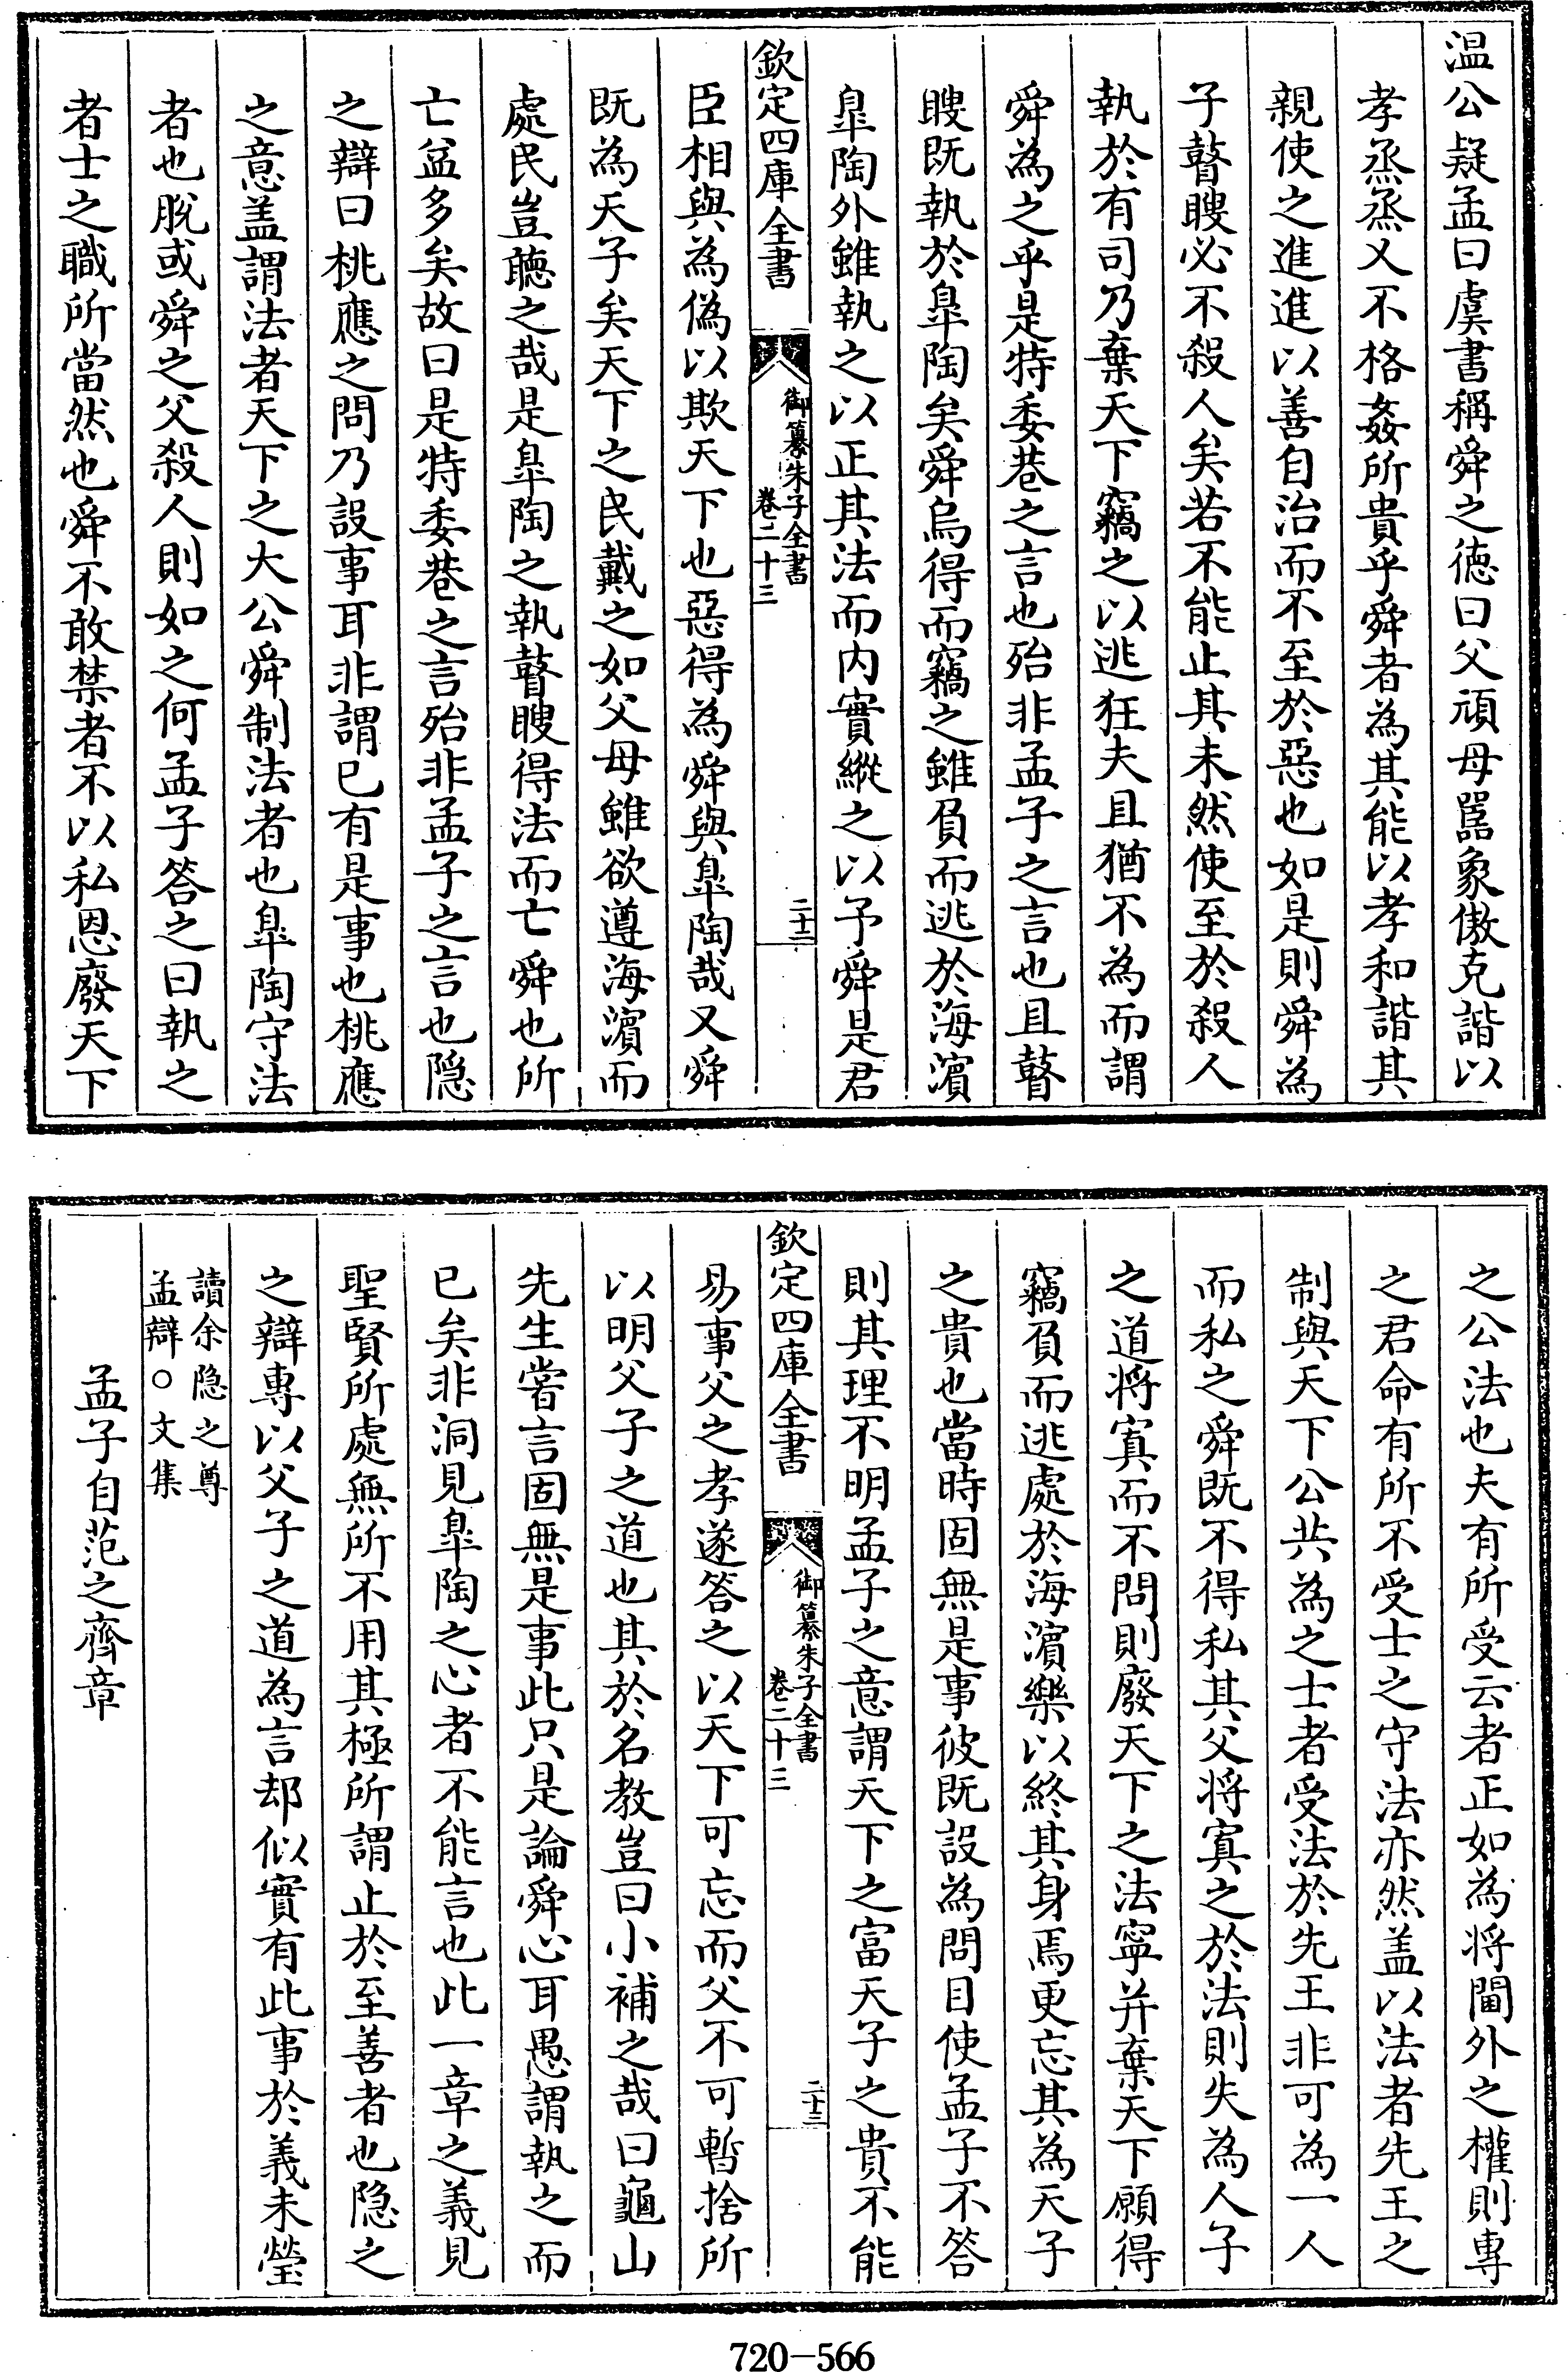 温公疑孟曰虞書稱舜之徳曰父頑母嚚象傲克諧以
孝烝烝乂不格姦所貴乎舜者為其能以孝和諧其
親使之進進以善自治而不至於惡也如是則舜為
子瞽瞍必不殺人矣若不能止其未然使至於殺人
執於有司乃棄天下竊之以逃狂夫且猶不為而謂
舜為之乎是特委巷之言也殆非孟子之言也且瞽
瞍既執於臯陶矣舜烏得而竊之雖負而逃於海濵
臯陶外雖執之以正其法而内實縱之以予舜是君
欽定四庫全書
御纂朱子全書
卷二十三
二十二
臣相與為偽以欺天下也惡得為舜與臯陶哉又舜
既為天子矣天下之民戴之如父母雖欲遵海濵而
處民豈聽之哉是臯陶之執瞽瞍得法而亡舜也所
亡益多矣故曰是特委巷之言殆非孟子之言也隐
之辯曰桃應之問乃設事耳非謂已有是事也桃應
之意盖謂法者天下之大公舜制法者也臯陶守法
者也脫或舜之父殺人則如之何孟子答之曰執之
者士之職所當然也舜不敢禁者不以私恩廢天下
之公法也夫有所受云者正如為将閫外之權則專
之君命有所不受士之守法亦然盖以法者先王之
制與天下公共為之士者受法於先王非可為一人
而私之舜既不得私其父将寘之於法則失為人子
之道将寘而不問則廢天下之法寧并棄天下願得
竊負而逃處於海濵樂以終其身焉更忘其為天子
之貴也當時固無是事彼既設為問目使孟子不答
則其理不明孟子之意謂天下之富天子之貴不能
欽定四庫全書
御纂朱子全書
卷二十三
二十三
易事父之孝遂答之以天下可忘而父不可暫捨所
以明父子之道也其於名教豈曰小補之哉曰龜山
先生嘗言固無是事此只是論舜心耳愚謂執之而
已矣非洞見臯陶之心者不能言也此一章之義見
聖賢所處無所不用其極所謂止於至善者也隐之
之辯專以父子之道為言却似實有此事於義未瑩
讀余隐之尊
孟辯○文集
孟子自范之齊章
720-566